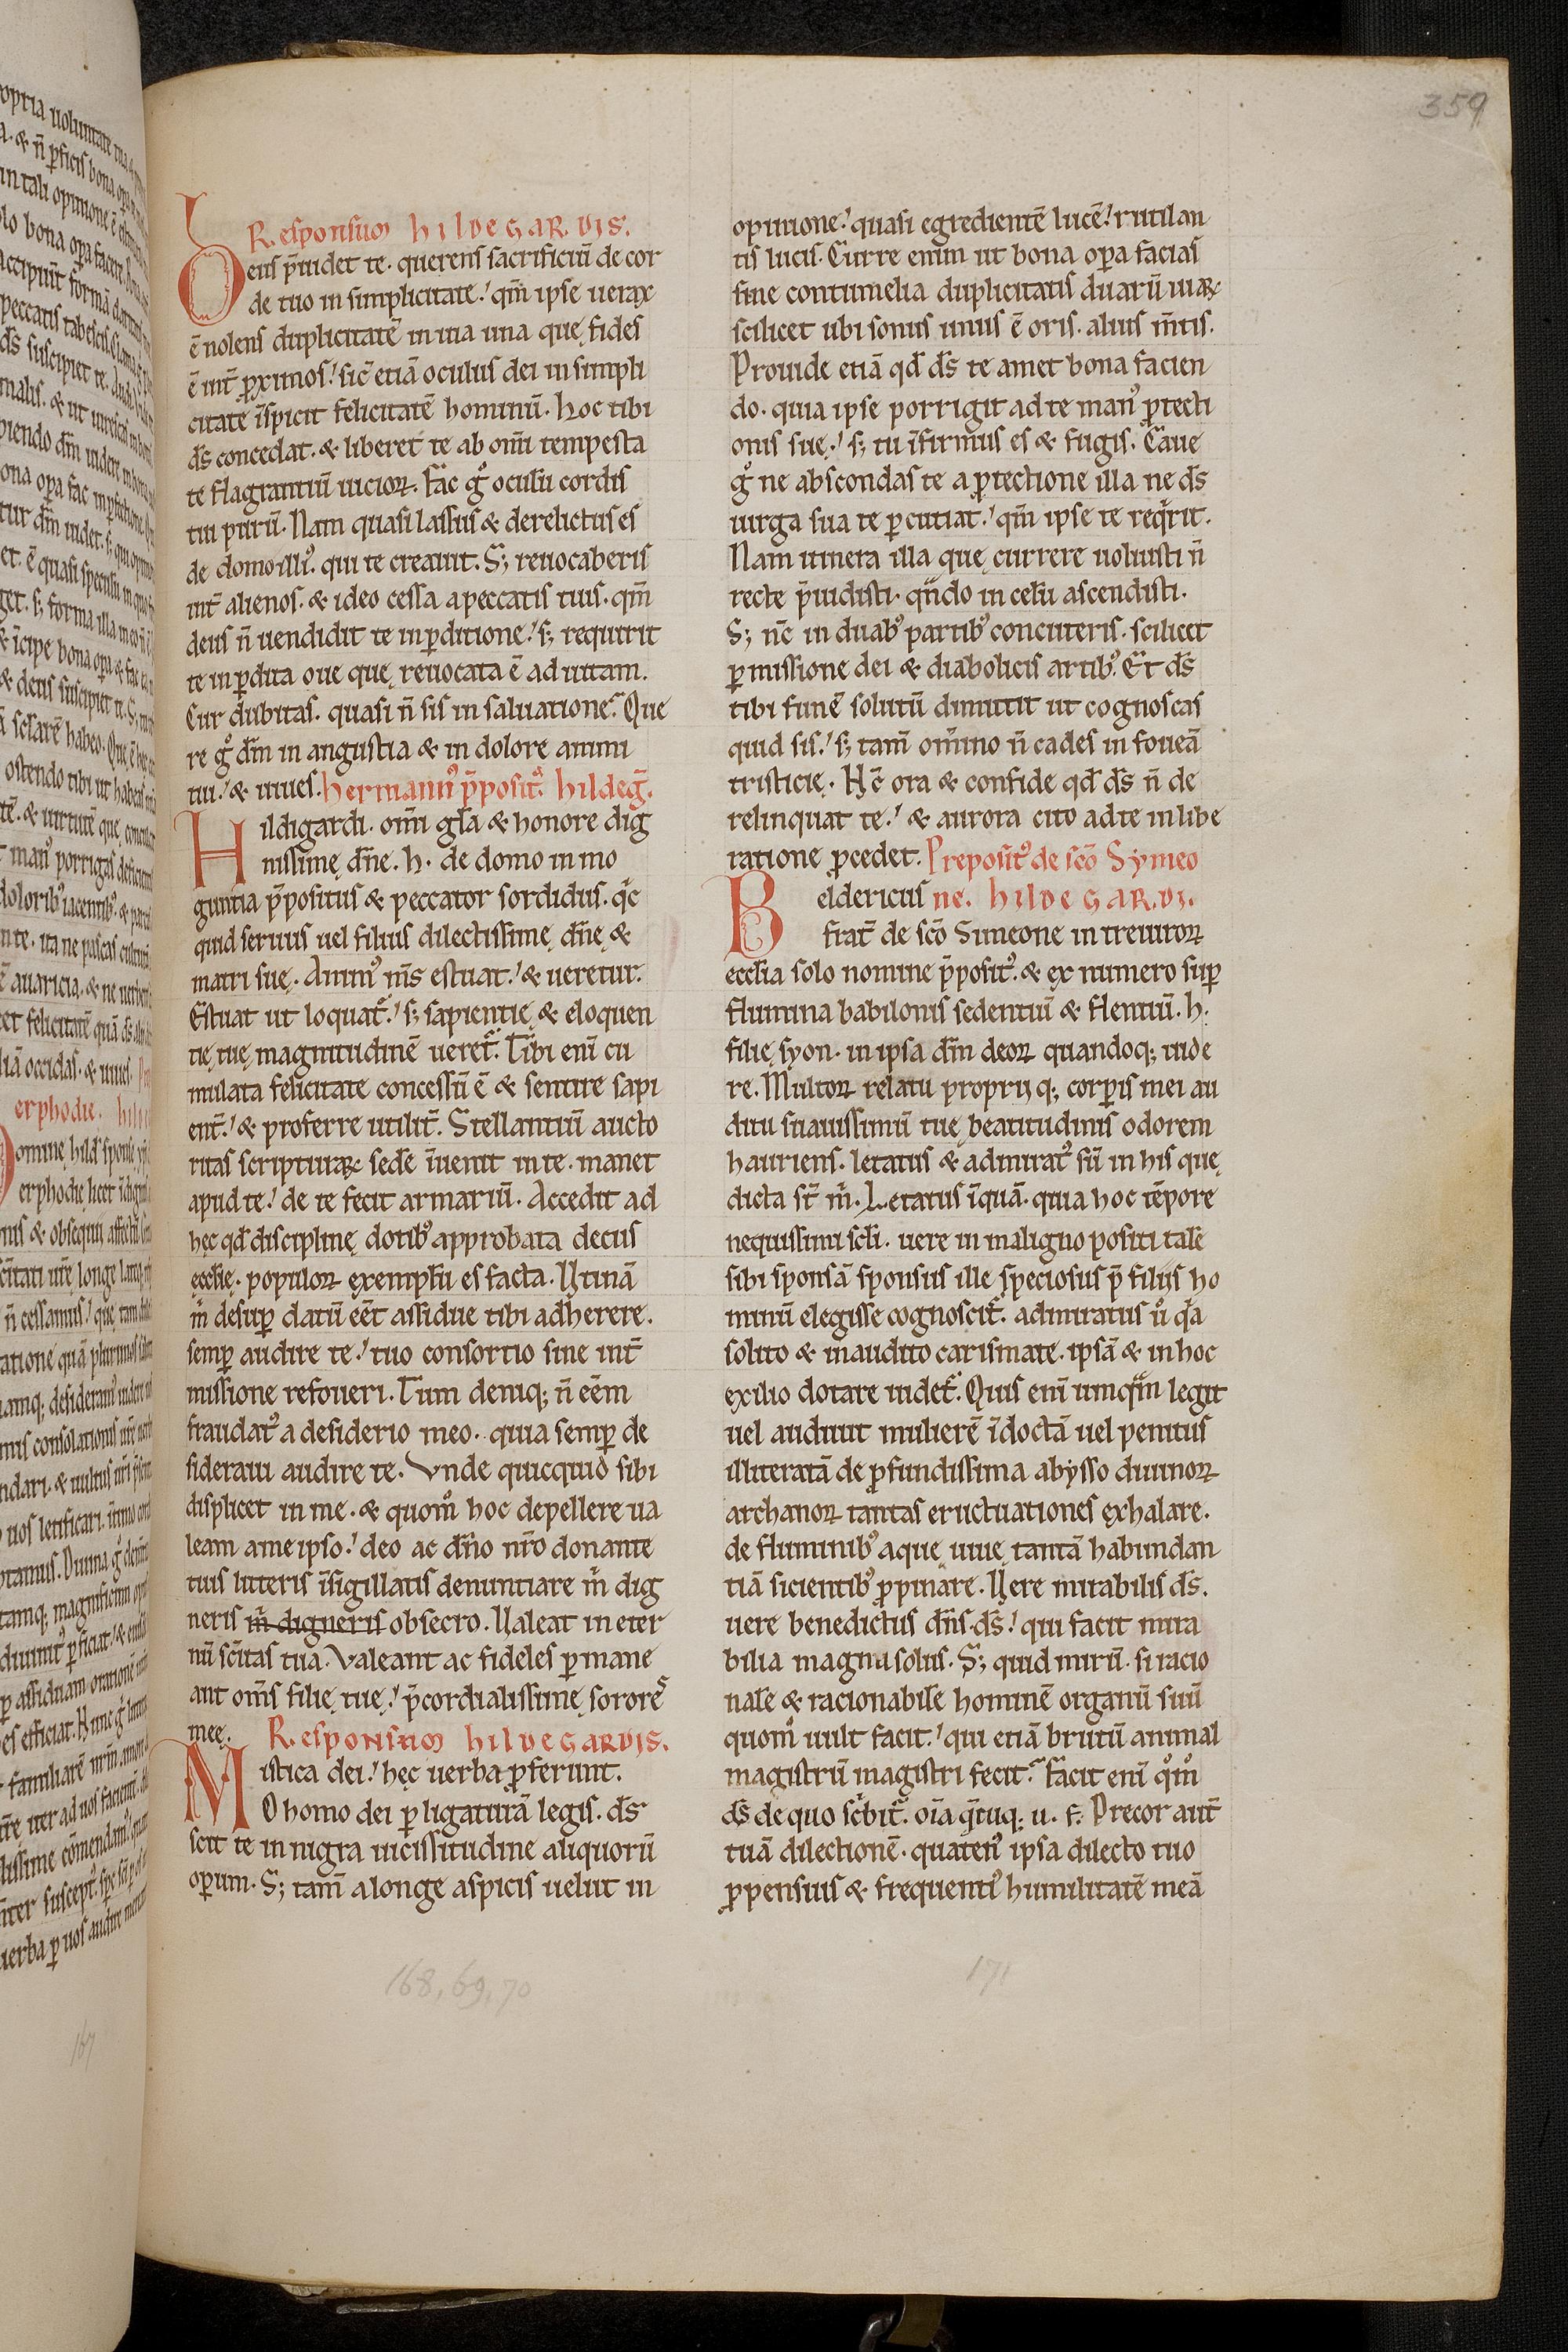 359
Responsum hildegardis.
Deus p̄uidet te. querens sacrificiū de cor
de tuo in simplicitate. qm̄ ipse uerax
ē nolens duplicitatē in uia una que fides
ē int̄ ꝓximos. sic̄ etiā oculus dei in simpli
citate īspicit felicitatē hominū. Hoc tibi
ds̄ concedat. & liberet te ab om̄i tempesta
te flagrantiū uicioꝝ. Fac gͦ oculū cordis
tui purū. Nam quasi lassus & derelictus es
de domo illiꝰ. qui te creauit. S; reuocaberis
int̄ alienos. & ideo cessa a peccatis tuis. qm̄
deus n̄ uendidit te in ꝑditione. s; requirit
te in ꝑdita oue que reuocata ē ad uitam.
Cur dubitas. quasi n̄ sis in saluatione. Que
re gͦ dm̄ in angustia & in dolore animi
tui. & uiues. hermannꝰ p̄positꝰ. hildeḡ.
Hildigardi. om̄i gl̄a & honore dig
nissime dn̄e. h. de domo in mo
guntia p̄positus & peccator sordidus. qͥc
quid seruus uel filius dilectissime dn̄e &
matri sue. Animꝰ m̄s estuat. & ueretur.
Estuat ut loquat̄. s; sapientie & eloquen
tie tue magnitudinē ueret̄. Tibi eni cu
mulata felicitate concessū ē & sentire sapi
ent̄. & proferre utilit̄. Stellantiū aucto
ritas scripturaꝝ sedē īuenit in te. manet
apud te. de te fecit armariū. Accedit ad
hęc qd̄ discipline dotibꝰ approbata decus
eccl̄ie. populoꝝ exemplū es facta. Utinā
m̄ desuꝑ datū eēt assidue tibi adherere.
semꝑ audire te. tuo consortio sine int̄
missione refoueri. Tum deniq; n̄ eēm
fraudatꝰ a desiderio meo. quia semꝑ de
sideraui audire te. Vnde quicquid sibi
displicet in me. & quomͦ hoc depellere ua
leam a me ipso. deo ac dn̄o nr̄o donante
tuis litteris īsigillatis denuntiare m̄ dig
neris m̄ digneris obsecro. Ualeat in eter
nū sc̄itas tua. Valeant ac fideles ꝑmane
ant om̄s filie tue. p̄cordialissime sorores
mee. Responsum hildegardis.
Mistica dei. hęc uerba ꝓferunt.
O homo dei ꝑ ligaturā legis. ds̄
scit te in nigra uicissitudine aliquorū
oꝑum. S; tam̄ a longe aspicis uelut in
opinione. quasi egredientē lucē. rutilan
tis lucis. Curre enim ut bona oꝑa facias
sine contumelia duplicitatis duarū uiaꝝ
scilicet ubi sonus unus ē oris. alius m̄tis.
Prouide etiā qd̄ ds̄ te amet bona facien
do. quia ipse porrigit ad te manꝰ ꝓtecti
onis sue. s; tu īfirmus es & fugis. Caue
gͦ ne abscondas te a ꝓtectione illa ne ds̄
uirga sua te ꝑcutiat. qm̄ ipse te reqͥrit.
Nam itinera illa que currere uoluisti n̄
recte p̄uidisti. qn̄do in celū ascendisti.
S; nc̄ in duabꝰ partibꝰ concuteris. scilicet
ꝑmissione dei & diabolicis artibꝰ. Et ds̄
tibi funē solutū dimittit ut cognoscas
quid sis. s; tam̄ om̄ino n̄ cades in foueā
tristicie. Hc̄ ora & confide qd̄ ds̄ n̄ de
relinquat te. & aurora cito ad te in libe
ratione ꝓcedet. Prepositꝰ de sc̄o Symeo
Beldericus ne. hildegardi.
frat̄ de sc̄o Simeone in treuiroꝝ
eccl̄ia solo nomine p̄positꝰ. & ex numero suꝑ
flumina babilonis sedentiū & flentiū. h.
filie syon. in ipsa dm̄ deoꝝ quandoq; uide
re. Multoꝝ relatu proprijq; corꝑis mei au
ditu suauissimū tue beatitudinis odorem
hauriens. letatus & admiratꝰ sū in his que
dicta st̄ m̄. Letatus īquā. quia hoc tēpore
nequissimi scl̄i. uere in maligno positi tale
sibi sponsā sponsus ille speciosus p̄ filijs ho
minū elegisse cognoscit̄. admiratus ū qͣa
solito & inaudito carismate. ipsā & in hoc
exilio dotare uidet̄. Quis eni umqͣm legit
uel audiuit mulierē īdoctā uel penitus
illiteratā de ꝓfundissima abysso diuinoꝝ
archanoꝝ tantas eructuationes exhalare.
de fluminibꝰ aque uiue tantā habundan
tiā sicientibꝰ ꝓpinare. Uere mirabilis ds̄.
uere benedictus dn̄s ds̄. qui facit mira
bilia magna solus. S; quid mirū. si racio
nale & racionabile hominē organū suū
quomͦ uult facit. qui etiā brutū animal
magistrū magistri fecit. Facit eni qͦmͦ
ds̄ de quo sc̄bit̄. oīa qͤcūq; u. f. Precor aut̄
tuā dilectionē. quatenꝰ ipsa dilecto tuo
ꝓpensius & frequentiꝰ humilitatē meā
168, 69, 70
171
167